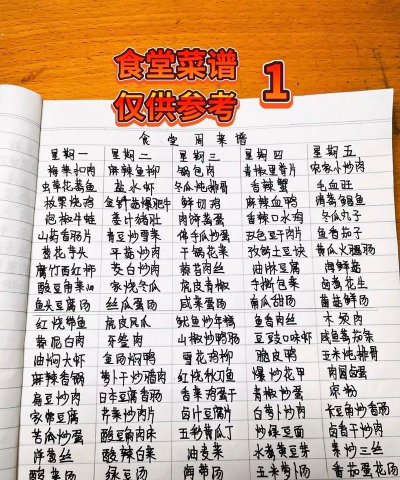 食堂菜谱
仅供参考
1
食堂周菜谱
星期一 星期二 星期三 星期四 星期五
梅菜扣肉 麻辣鱼柳 锅包肉 青椒里脊片 农家小炒肉
虫草花蒸鱼 盐水虾 冬瓜炖排骨 香辣蟹 毛血旺
板栗烧鸡 金针菇爆肥牛 鲜切鸡 麻辣血鸭 清蒸鲳鱼
泡椒牛蛙 姜汁猪肚 肉饼蒸蛋 香辣口水鸡 冬瓜丸子
山药香肠片 青豆炒雪菜 佛手瓜炒蛋 双色豆干肉片 鱼香茄子
黄花骨头 平菇炒肉 干锅花菜 孜然土豆块 黄瓜火腿肠
腐竹西红柿 茭白炒肉 蘑菇肉丝 油淋豆腐 海鲜菇
酸豆角 家烧冬瓜 虎皮青椒 手撕包菜 卤花生
鱼头豆腐汤 丝瓜蛋汤 咸菜蛋汤 南瓜甜汤 菌菇鲜汤
红烧带鱼 虎皮凤爪 鱿鱼炒年糕 鱼香肉丝 木须肉
蒜泥白肉 牙签肉 山椒炒鸭肠 豆豉口味虾 咸鱼茄条
油焖大虾 鱼汤焖鸭 雪花鸡柳 脆皮鸭 玉米炖排骨
麻辣香锅 萝卜干炒腊肉 红烧秋刀鱼 爆炒花甲 肉圆卤蛋
扁豆炒肉 日本豆腐香肠 香菜鸡蛋干 青椒炒蛋 凉粉
家常豆腐 芹菜炒肉片 卤汁豆腐片 白萝卜炒肉 豆角炒香肠
苦瓜炒蛋 酸豆角肉末 五彩黄瓜丁 炒绿豆面 卤香干炒肉
洋葱丝 酸辣白菜 油麦菜 水煮黄豆芽 素炒三丝
酸菜汤 绿豆汤 海带汤 玉米萝卜汤 番茄蛋花汤